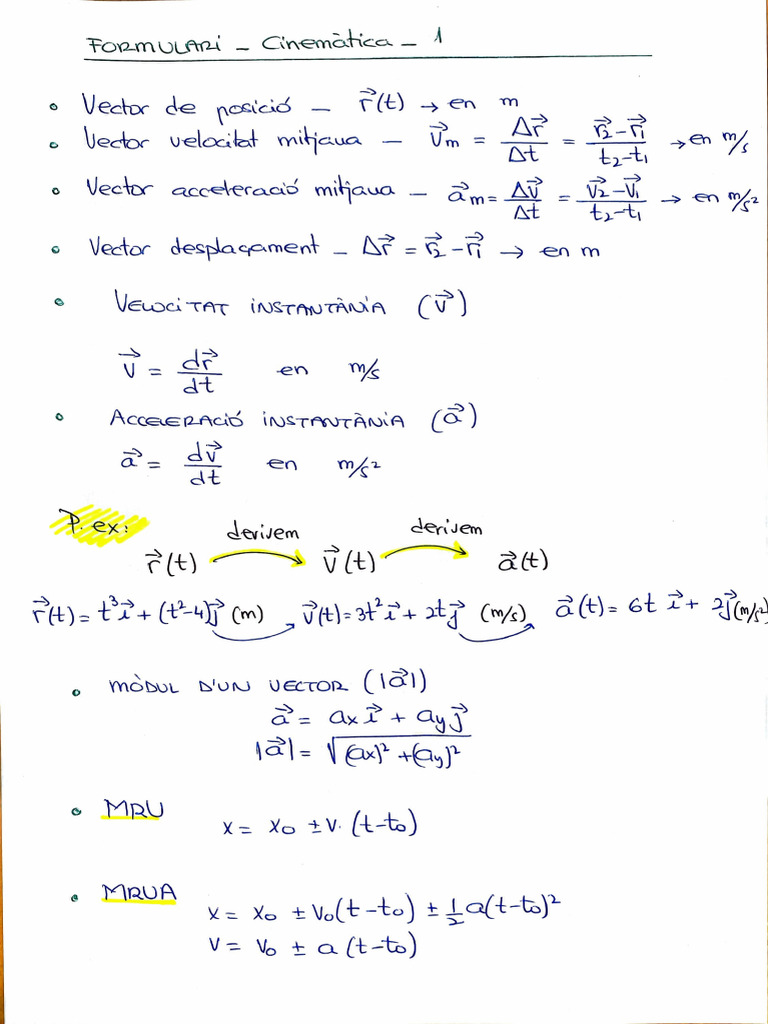 FORMULARI - Cinemàtica - 1
• Vector de posició - r⃗(t) → en m
• Vector velocitat mitjana - v⃗m = Δr⃗/Δt = (r⃗2 - r⃗1)/(t2 - t1) → en m/s
• Vector acceleració mitjana - a⃗m = Δv⃗/Δt = (v⃗2 - v⃗1)/(t2 - t1) → en m/s²
• Vector desplaçament - Δr⃗ = r⃗2 - r⃗1 → en m
• VELOCITAT INSTANTÀNIA (v⃗)
v⃗ = dr⃗/dt en m/s
• ACCELERACIÓ INSTANTÀNIA (a⃗)
a⃗ = dv⃗/dt en m/s²
P. ex:
derivem derivem
r⃗(t) v⃗(t) a⃗(t)
r⃗(t) = t³ i⃗ + (t²-4) j⃗ (m) v⃗(t) = 3t² i⃗ + 2t j⃗ (m/s) a⃗(t) = 6t i⃗ + 2j⃗ (m/s²)
• MÒDUL D'UN VECTOR (|a⃗|)
a⃗ = ax i⃗ + ay j⃗
|a⃗| = √((ax)² + (ay)²)
• MRU
x = x0 ± v · (t - t0)
• MRUA
x = x0 ± v0 (t - t0) ± 1/2 a (t - t0)²
v = v0 ± a (t - t0)